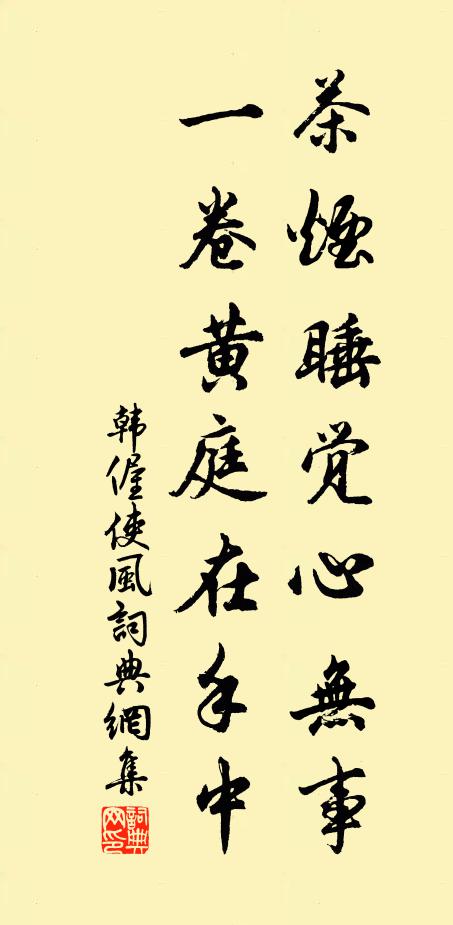 茶煙睡觉心無事
一卷黄庭在手中
韩偓使風詞典網集
詞典網印